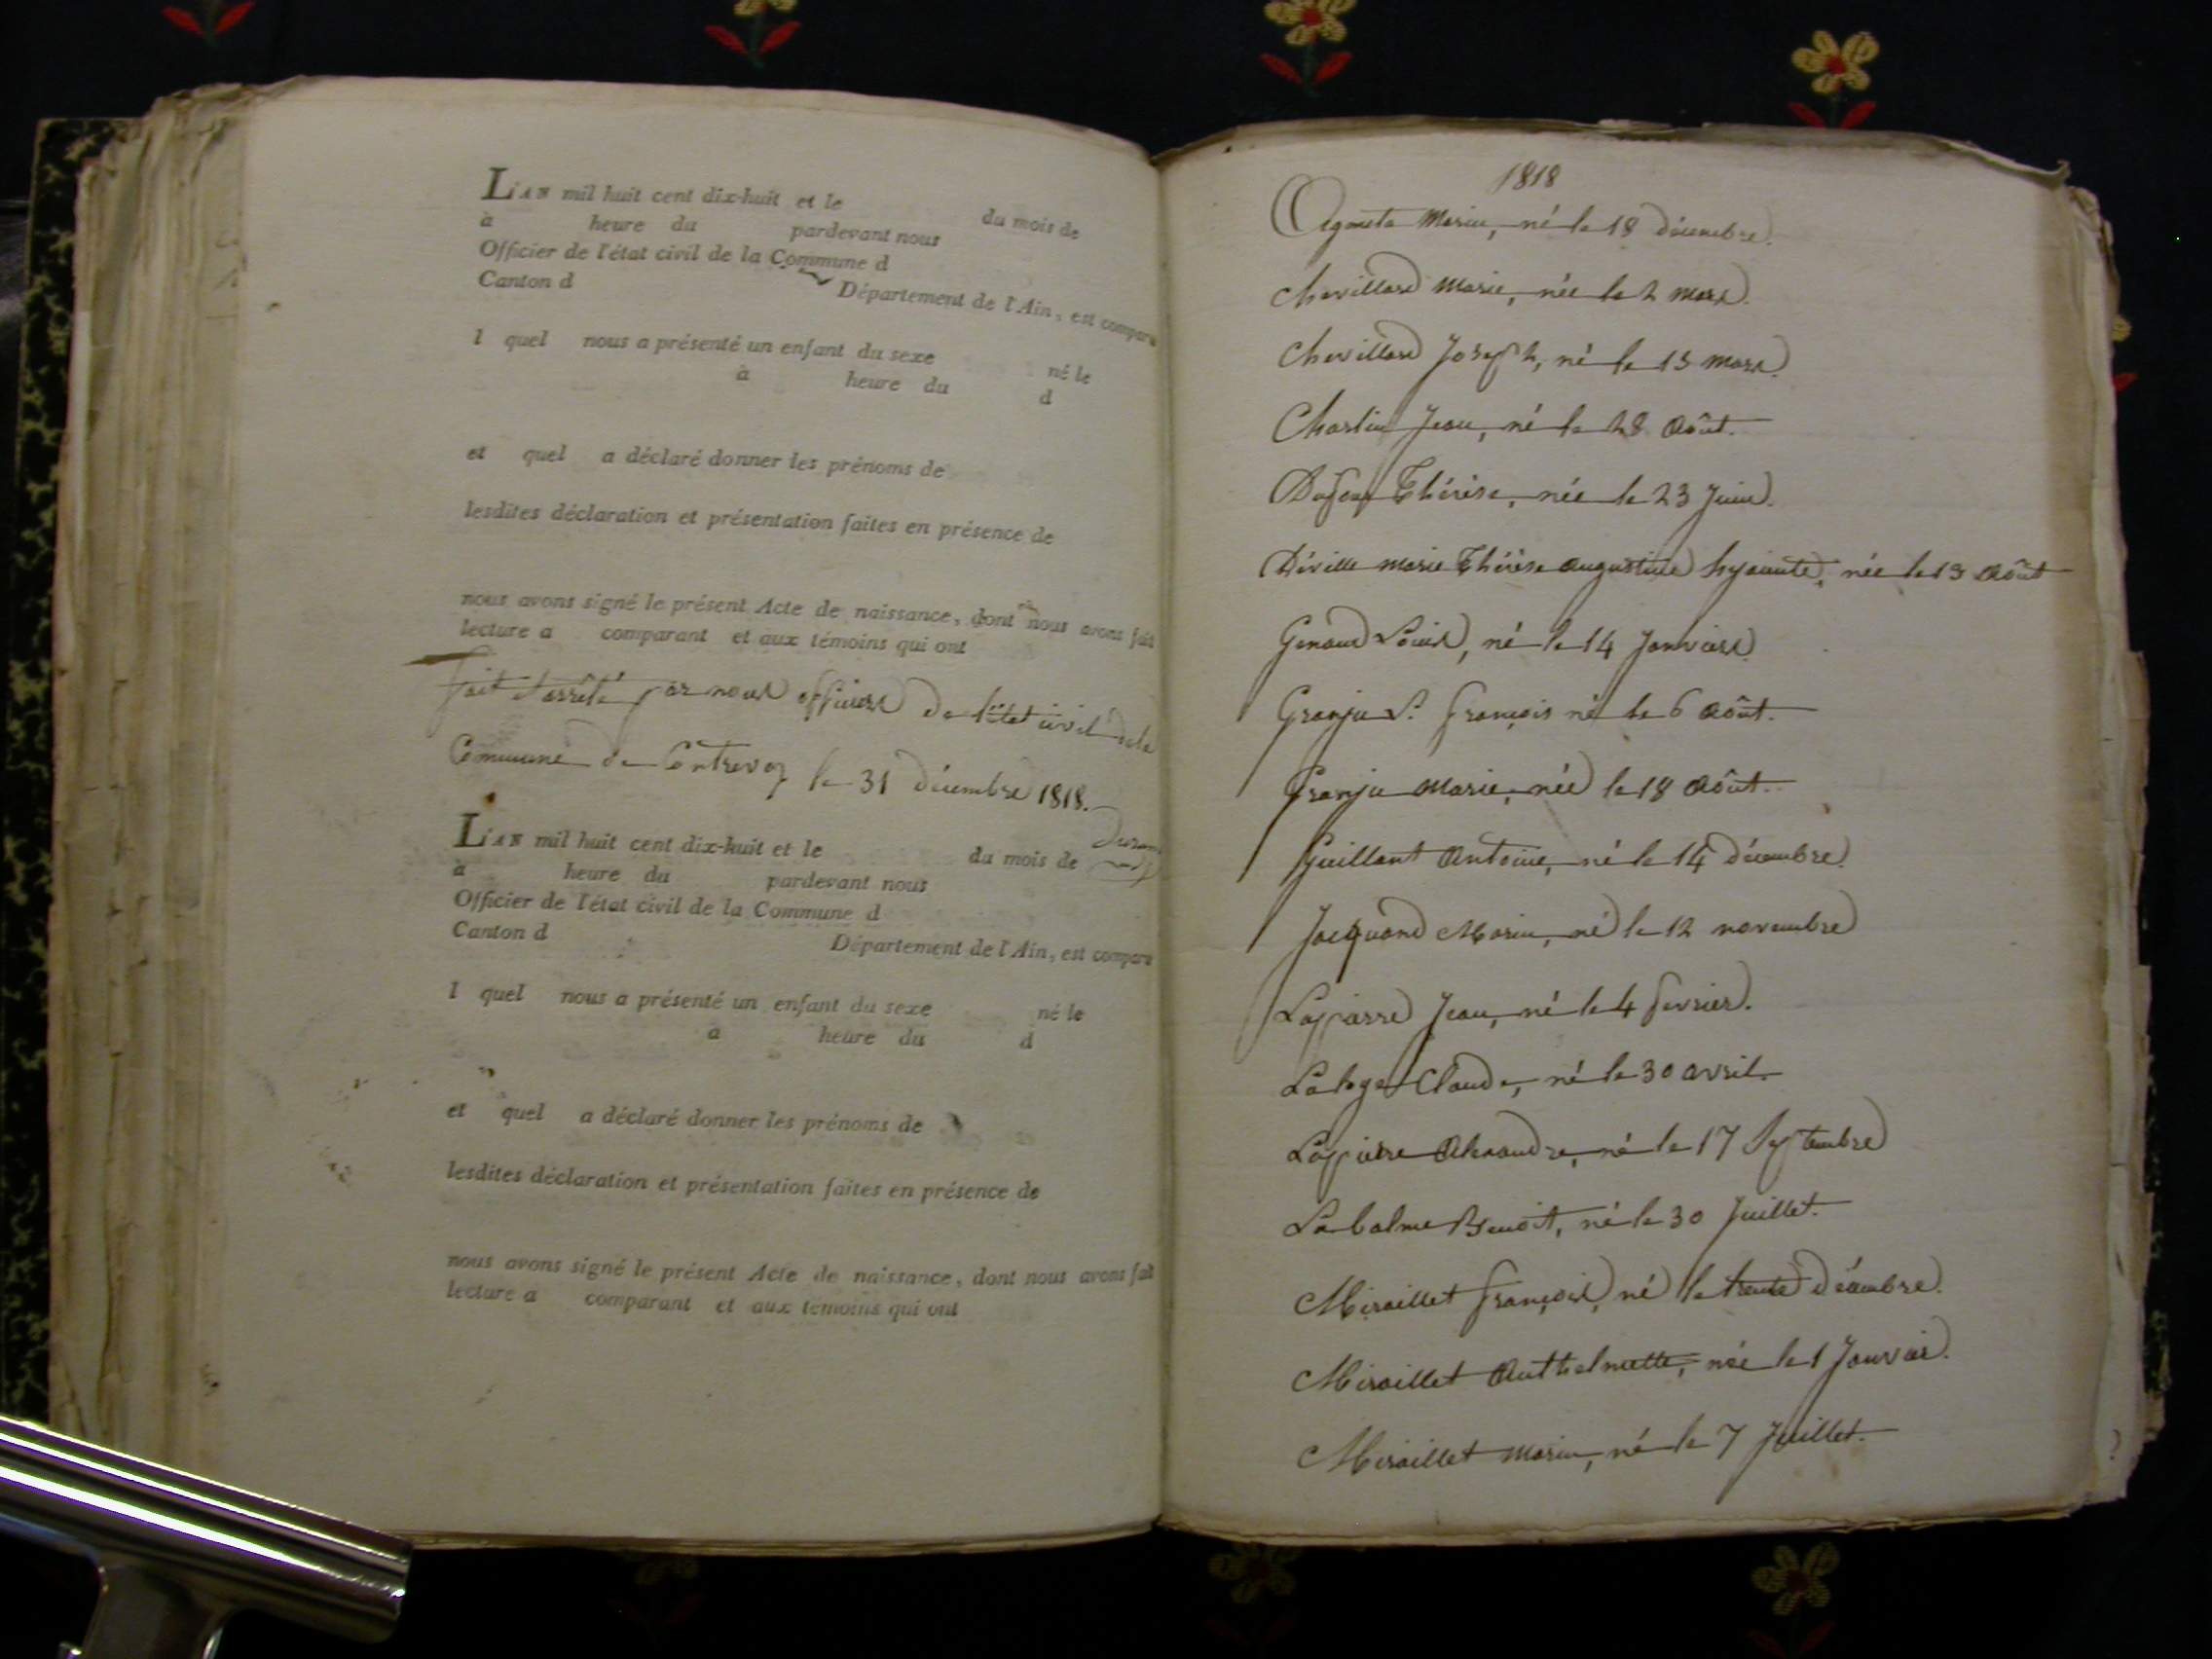 L'AN mil huit cent dix-huit et le du mois de
à heure du pardevant nous
Officier de l'état civil de la Commune d
Canton d Département de l'Ain, est comparu
l quel nous a présenté un enfant du sexe né le
à heure du d
et quel a déclaré donner les prénoms de
lesdites déclaration et présentation faites en présence de
nous avons signé le présent Acte de naissance, dont nous avons fait
lecture a comparant et aux témoins qui ont
fait et arrêté par nous officier de l'état civil de la
Commune de Contrevoz le 31 décembre 1818.
L'AN mil huit cent dix-huit et le du mois de
à heure du pardevant nous
Officier de l'état civil de la Commune d
Canton d Département de l'Ain, est comparu
l quel nous a présenté un enfant du sexe né le
a heure du d
et quel a déclaré donner les prénoms de
lesdites déclaration et présentation faites en présence de
nous avons signé le présent Acte de naissance, dont nous avons fait
lecture a comparant et aux témoins qui ont
1818
Marin, né le 18 décembre.
Chevillard Marie, née le 2 mars.
Chevillard Joseph, né le 13 mars.
Charlin Jean, né le 28 Août.
Thérèse, née le 23 Juin.
Déville marie Thérèse augustine hyacinte, née le 13 Août
Genaud Louis, né le 14 Janvier
Granju L. françois né le 6 Août.
Granju Marie, née le 18 Août.
Guillant Antoine, né le 14 décembre.
Jacquand Marin, né le 12 novembre
Lapierre Jean, né le 4 fevrier.
Laloge Claude, né le 30 avril.
Lapierre Alexandre, né le 17 Septembre
Labalme Benoit, né le 30 Juillet.
Miraillet françois, né le trente décembre.
Miraillet Anthelmette, née le 1 Janvier.
Miraillet marin, né le 7 Juillet.